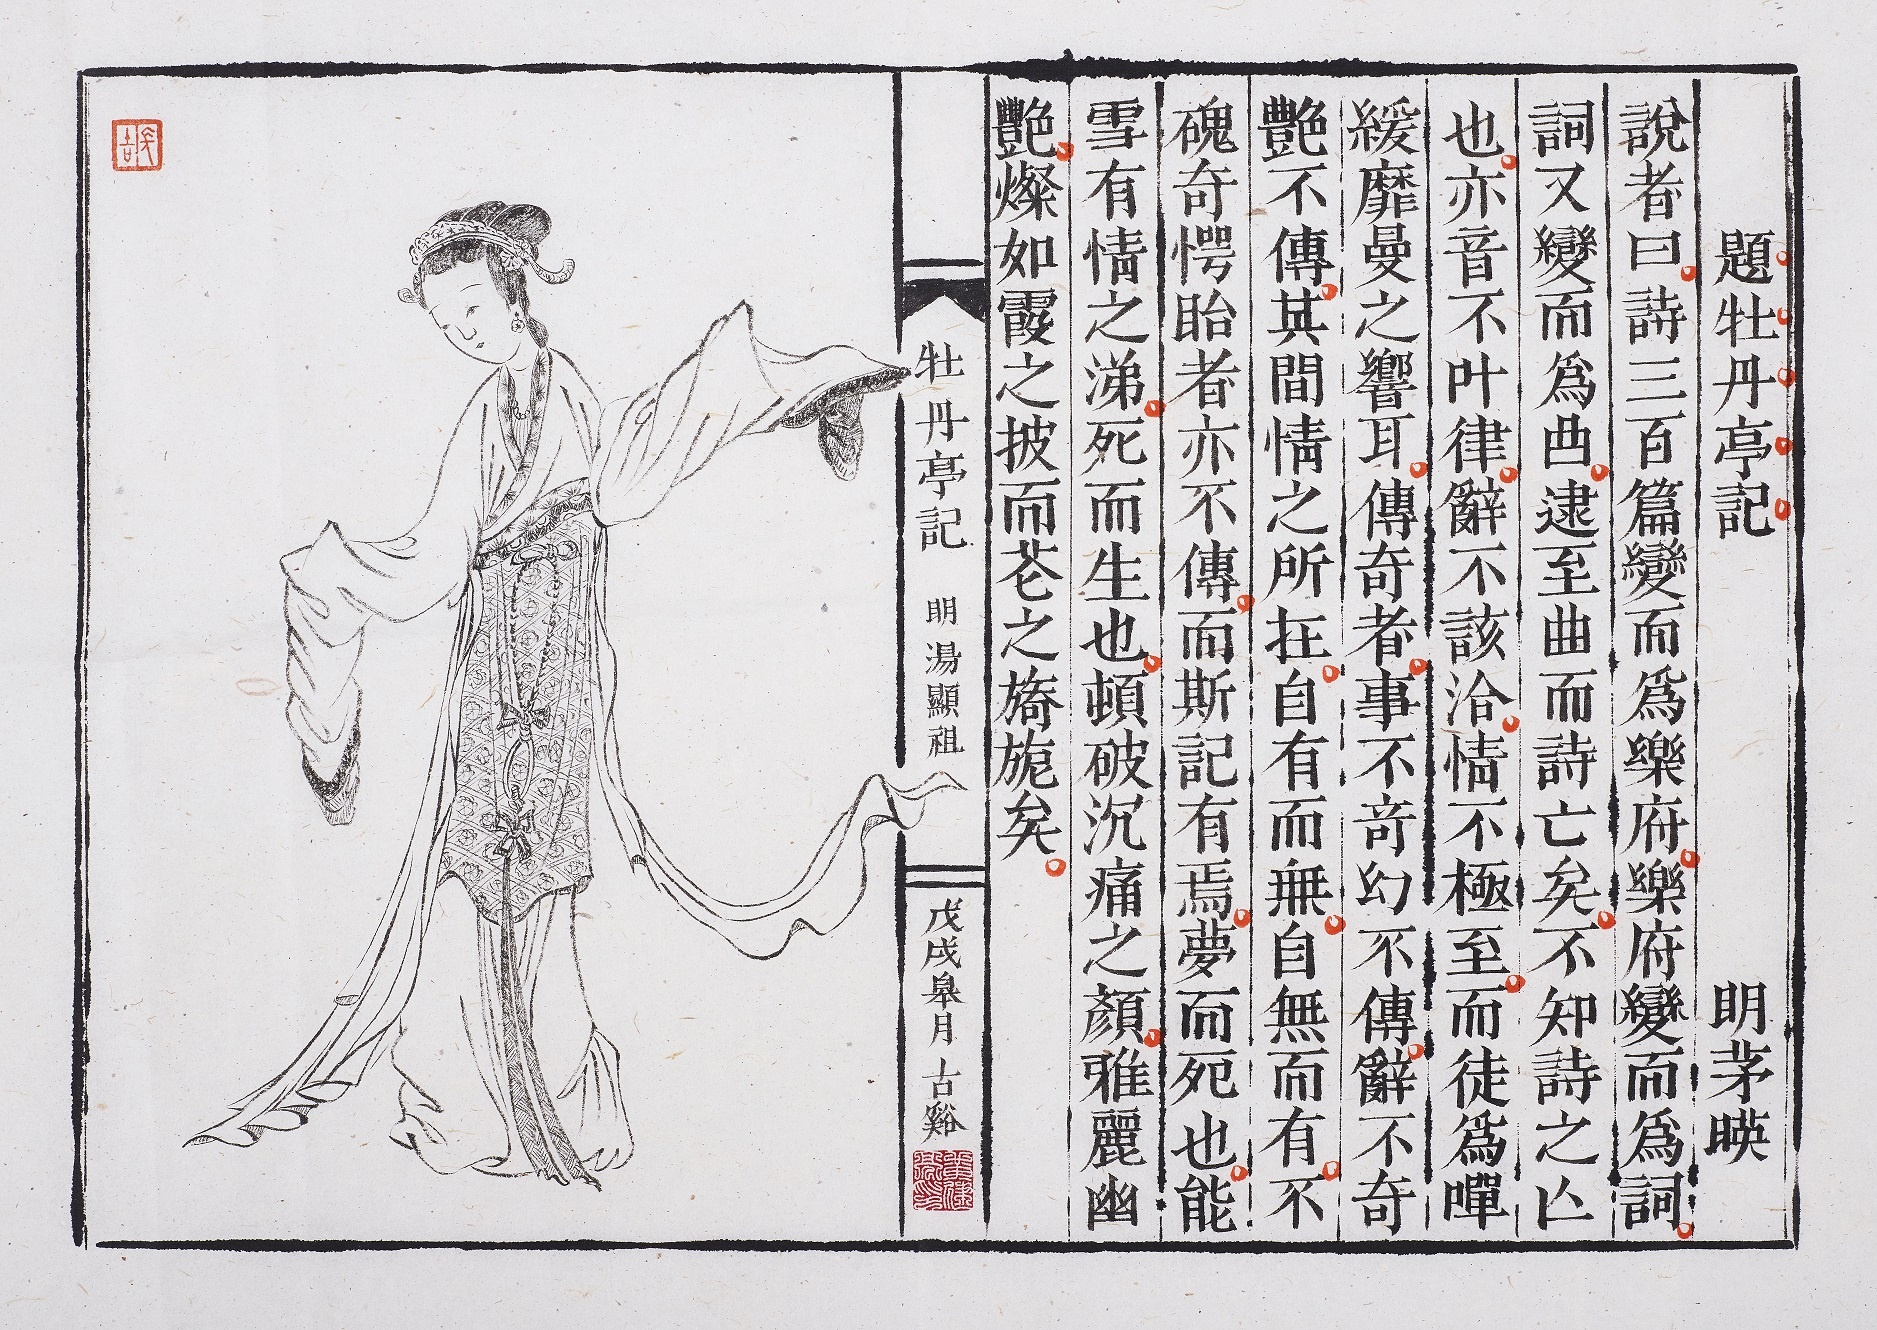 題牡丹亭記 明茅暎
說者曰詩三百篇變而爲樂府樂府變而爲詞
詞又變而爲曲逮至曲而詩亡矣不知詩之亾
也亦音不叶律辭不該洽情不極至而徒爲嘽
緩靡曼之響耳傳奇者事不奇幻不傳辭不奇
艷不傳其間情之所在自有而無自無而有不
磈奇愕眙者亦不傳而斯記有焉夢而死也能
雪有情之涕死而生也頓破沉痛之顏雅麗幽
艷燦如霞之披而芲之旖旎矣
牡丹亭記 明湯顯祖
戊戌皋月 古谿